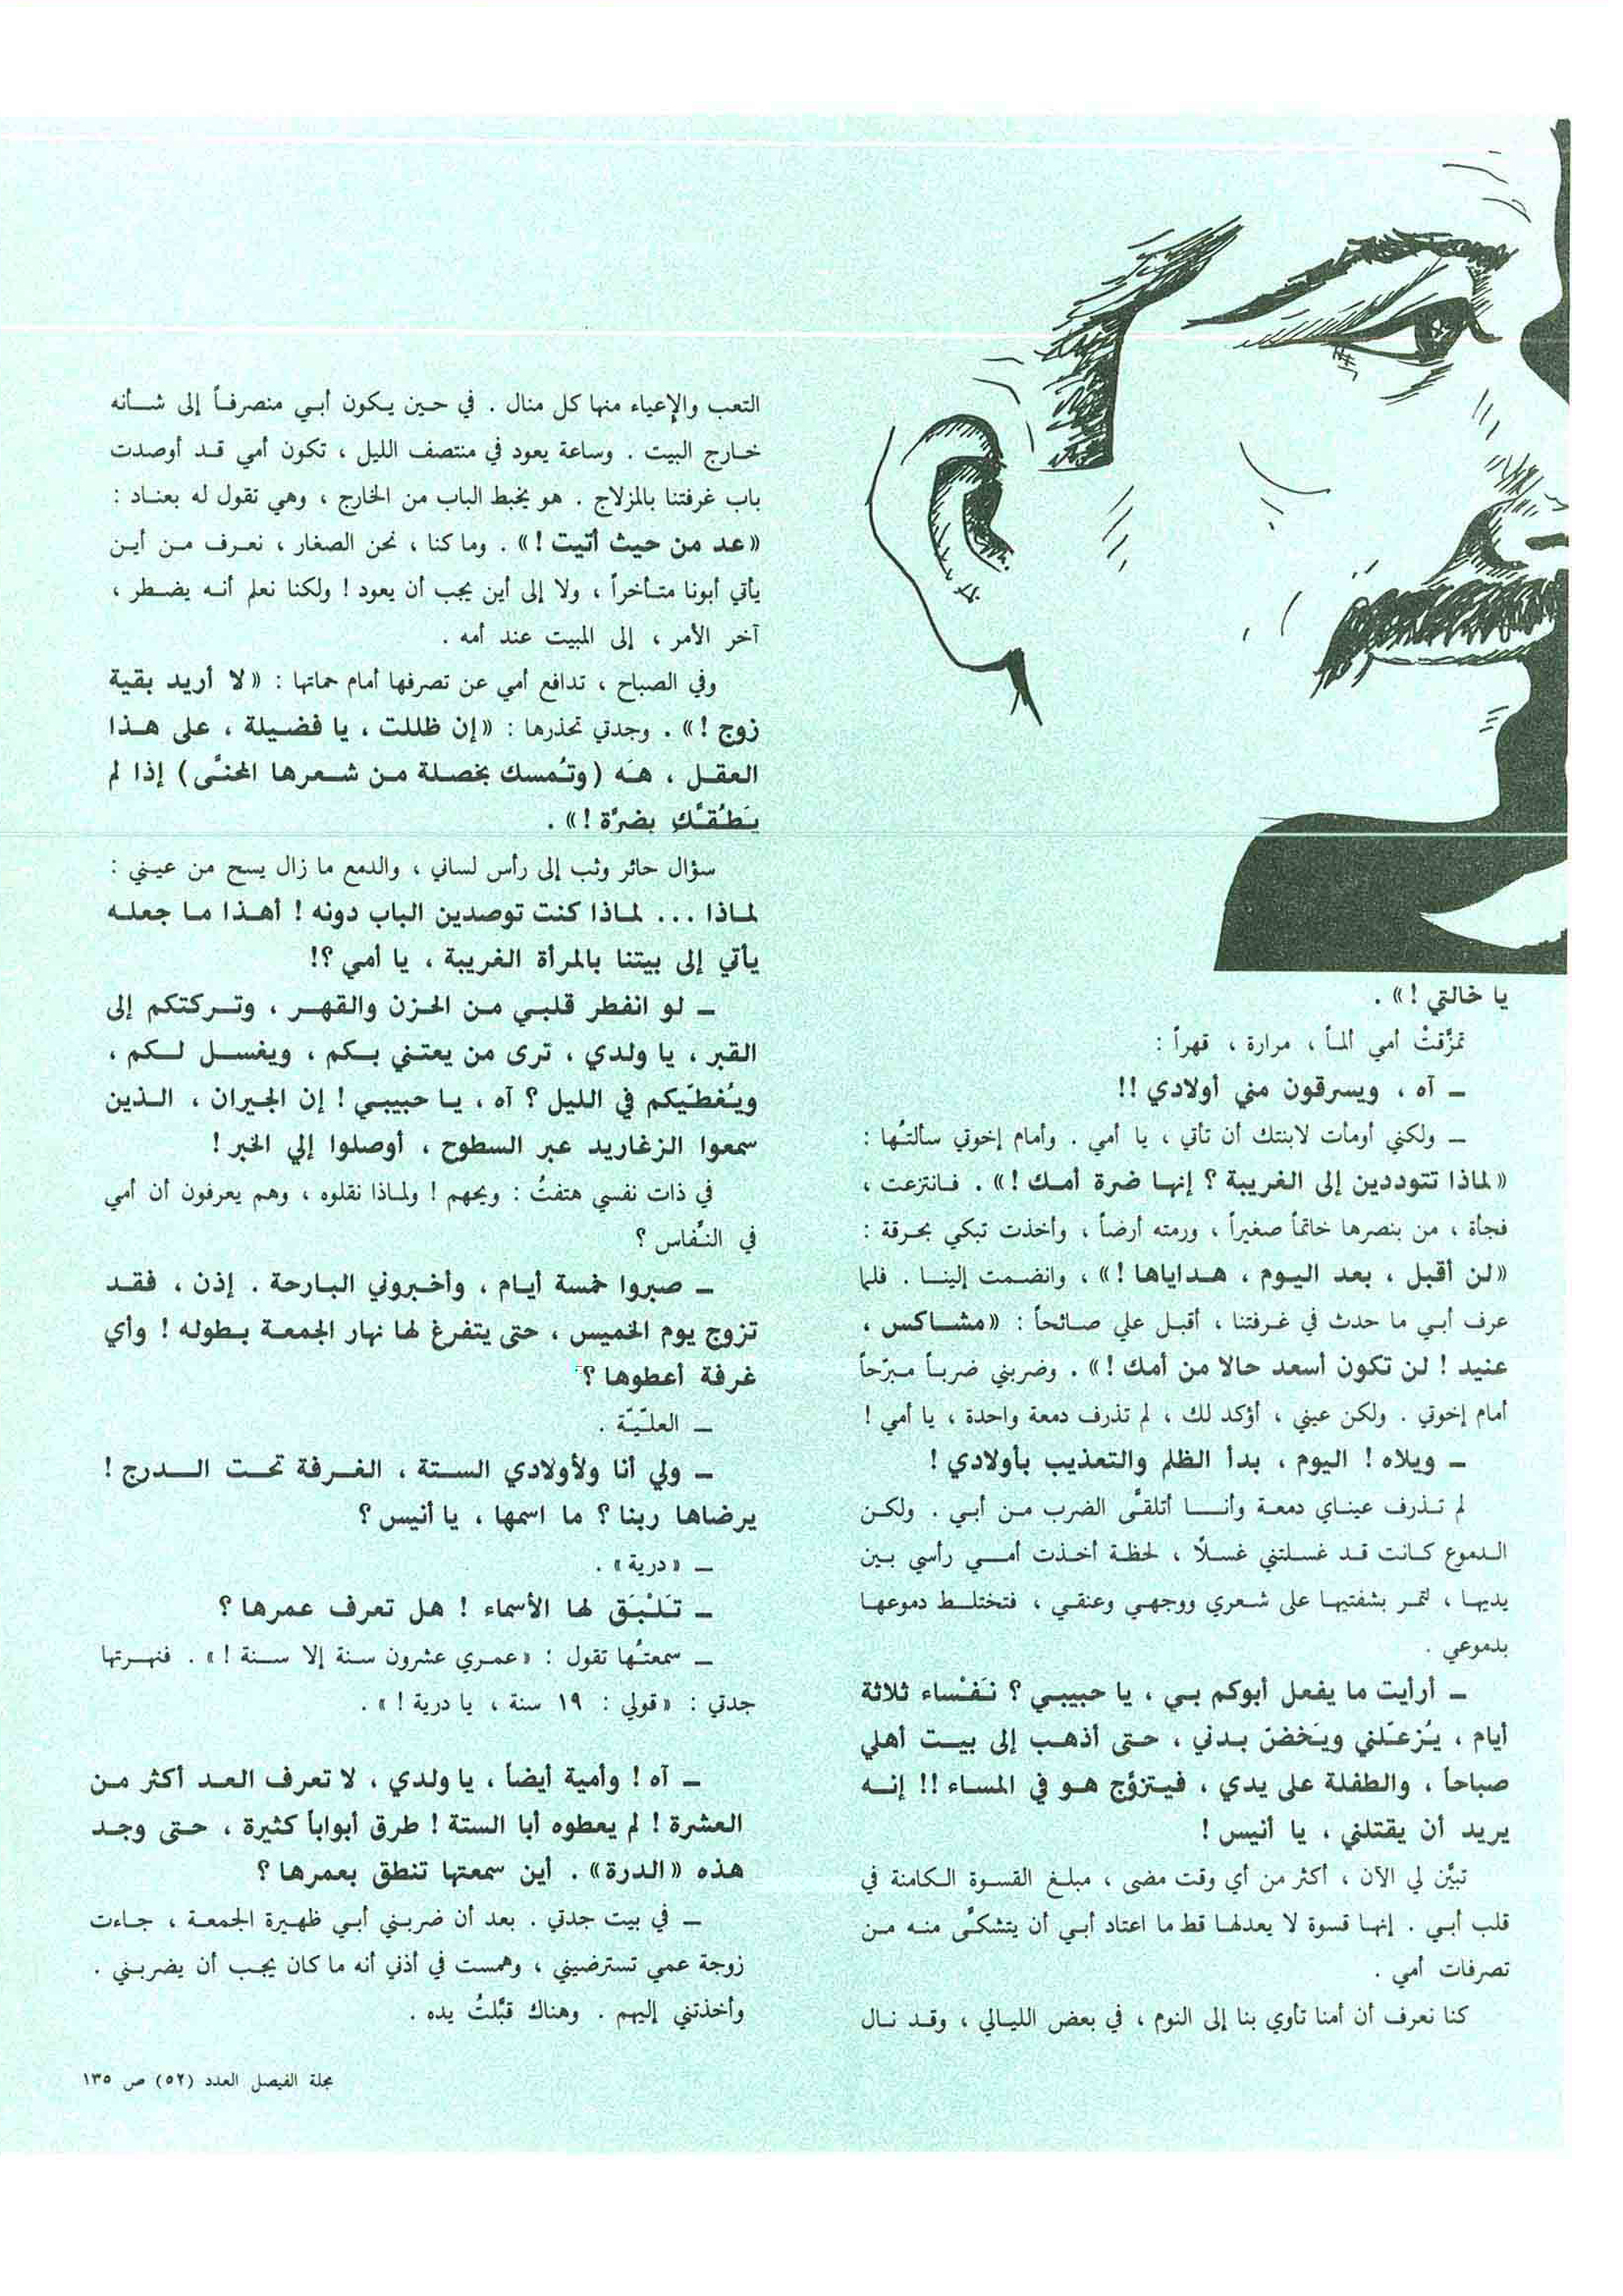 يا خالتي !» .
تمزَّقتْ أمي ألمـاً ، مرارة ، قهراً :
ـ آه ، ويسرقون مني أولادي !!
ـ ولكني أومأت لابنتك أن تأتي ، يا أمي . وأمام إخوتي سألتُها :
«لماذا تتوددين إلى الغريبة ؟ إنها ضرة أمك !» . فانتزعت ،
فجأة ، من بنصرها خاتماً صغيراً ، ورمته أرضاً ، وأخذت تبكي بحرقة :
«لن أقبل ، بعد اليوم ، هداياها !» ، وانضمت إلينا . فلما
عرف أبي ما حدث في غرفتنا ، أقبل علي صائحاً : «مشاكس ،
عنيد ! لن تكون أسعد حالا من أمك !» . وضربني ضرباً مبرّحاً
أمام إخوتي . ولكن عيني ، أؤكد لك ، لم تذرف دمعة واحدة ، يا أمي !
ـ ويلاه ! اليوم ، بدأ الظلم والتعذيب بأولادي !
لم تذرف عيناي دمعة وأنا أتلقَّى الضرب من أبي . ولكن
الدموع كانت قد غسلتني غسلًا ، لحظة أخذت أمي رأسي بين
يديها ، لتمر بشفتيها على شعري ووجهي وعنقي ، فتختلط دموعها
بدموعي .
ـ أرأيت ما يفعل أبوكم بي ، يا حبيبي ؟ نَفْساء ثلاثة
أيام ، يُزعّلني ويَخضّ بدني ، حتى أذهب إلى بيت أهلي
صباحاً ، والطفلة على يدي ، فيتزوَّج هو في المساء !! إنه
يريد أن يقتلني ، يا أنيس !
تبيَّن لي الآن ، أكثر من أي وقت مضى ، مبلغ القسوة الكامنة في
قلب أبي . إنها قسوة لا يعدلها قط ما اعتاد أبي أن يتشكَّى منه من
تصرفات أمي .
كنا نعرف أن أمنا تأوي بنا إلى النوم ، في بعض الليالي ، وقد نال
التعب والإعياء منها كل منال . في حين يكون أبي منصرفاً إلى شأنه
خارج البيت . وساعة يعود في منتصف الليل ، تكون أمي قد أوصدت
باب غرفتنا بالمزلاج . هو يخبط الباب من الخارج ، وهي تقول له بعناد :
«عد من حيث أتيت !» . وما كنا ، نحن الصغار ، نعرف من أين
يأتي أبونا متأخراً ، ولا إلى أين يجب أن يعود ! ولكنا نعلم أنه يضطر ،
آخر الأمر ، إلى المبيت عند أمه .
وفي الصباح ، تدافع أمي عن تصرفها أمام حماتها : «لا أريد بقية
زوج !» . وجدتي تحذرها : «إن ظللت ، يا فضيلة ، على هذا
العقل ، هَه (وتُمسك بخصلة من شعرها المحنَّى) إذا لم
يَطُقَّكِ بضرَّة !» .
سؤال حائر وثب إلى رأس لساني ، والدمع ما زال يسح من عيني :
لماذا ... لماذا كنت توصدين الباب دونه ! أهذا ما جعله
يأتي إلى بيتنا بالمرأة الغريبة ، يا أمي ؟!
ـ لو انفطر قلبي من الحزن والقهر ، وتركتكم إلى
القبر ، يا ولدي ، ترى من يعتني بكم ، ويغسل لكم ،
ويُغطّيكم في الليل ؟ آه ، يا حبيبي ! إن الجيران ، الذين
سمعوا الزغاريد عبر السطوح ، أوصلوا إلي الخبر !
في ذات نفسي هتفتُ : ويحهم ! ولماذا نقلوه ، وهم يعرفون أن أمي
في النَّفاس ؟
ـ صبروا خمسة أيام ، وأخبروني البارحة . إذن ، فقد
تزوج يوم الخميس ، حتى يتفرغ لها نهار الجمعة بطوله ! وأي
غرفة أعطوها ؟
ـ العلّيّة .
ـ ولي أنا ولأولادي الستة ، الغرفة تحت الدرج !
يرضاها ربنا ؟ ما اسمها ، يا أنيس ؟
ـ «درية» .
ـ تَلْبَق لها الأسماء ! هل تعرف عمرها ؟
ـ سمعتُها تقول : «عمري عشرون سنة إلا سنة !» . فنهرتها
جدتي : «قولي : ١٩ سنة ، يا درية !» .
ـ آه ! وأمية أيضاً ، يا ولدي ، لا تعرف العد أكثر من
العشرة ! لم يعطوه أبا الستة ! طرق أبواباً كثيرة ، حتى وجد
هذه «الدرة» . أين سمعتها تنطق بعمرها ؟
ـ في بيت جدتي . بعد أن ضربني أبي ظهيرة الجمعة ، جاءت
زوجة عمي تسترضيني ، وهمست في أذني أنه ما كان يجب أن يضربني .
وأخذتني إليهم . وهناك قبَّلتُ يده .
مجلة الفيصل العدد (٥٢) ص ١٣٥